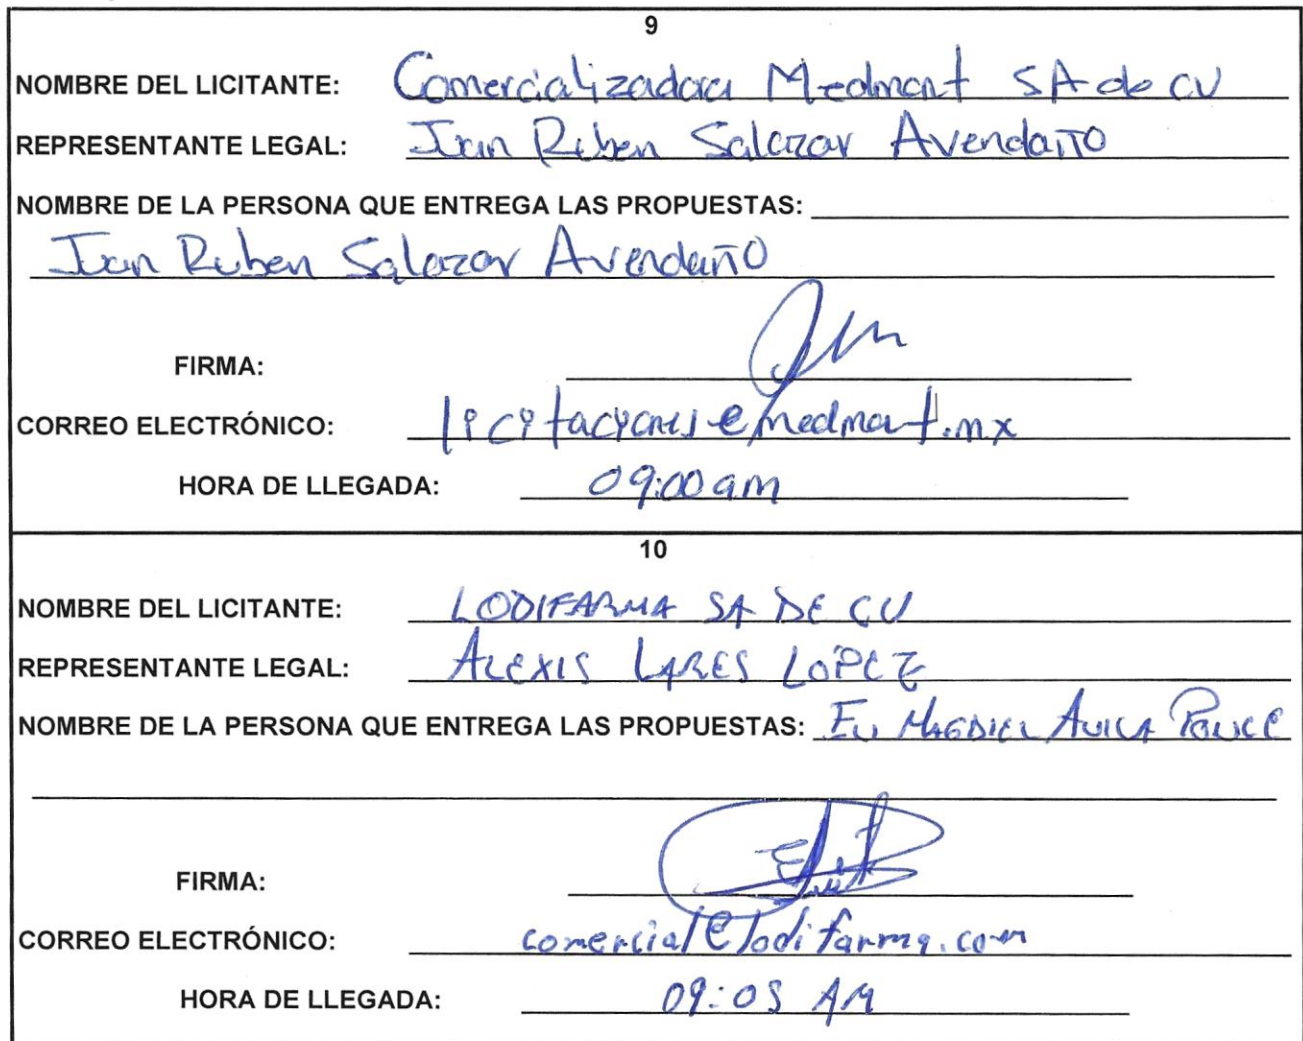 9
NOMBRE DEL LICITANTE: Comercializadora Medmart SA de CV
REPRESENTANTE LEGAL: Juan Ruben Salazar Avendaño
NOMBRE DE LA PERSONA QUE ENTREGA LAS PROPUESTAS:
Juan Ruben Salazar Avendaño
FIRMA:
CORREO ELECTRÓNICO: licitaciones@medmart.mx
HORA DE LLEGADA: 09:00 am
10
NOMBRE DEL LICITANTE: LODIFARMA SA DE CV
REPRESENTANTE LEGAL: ALEXIS LARES LOPEZ
NOMBRE DE LA PERSONA QUE ENTREGA LAS PROPUESTAS: MAGDIEL AVILA PONCE
FIRMA:
CORREO ELECTRÓNICO: comercial@lodifarma.com
HORA DE LLEGADA: 09:05 AM